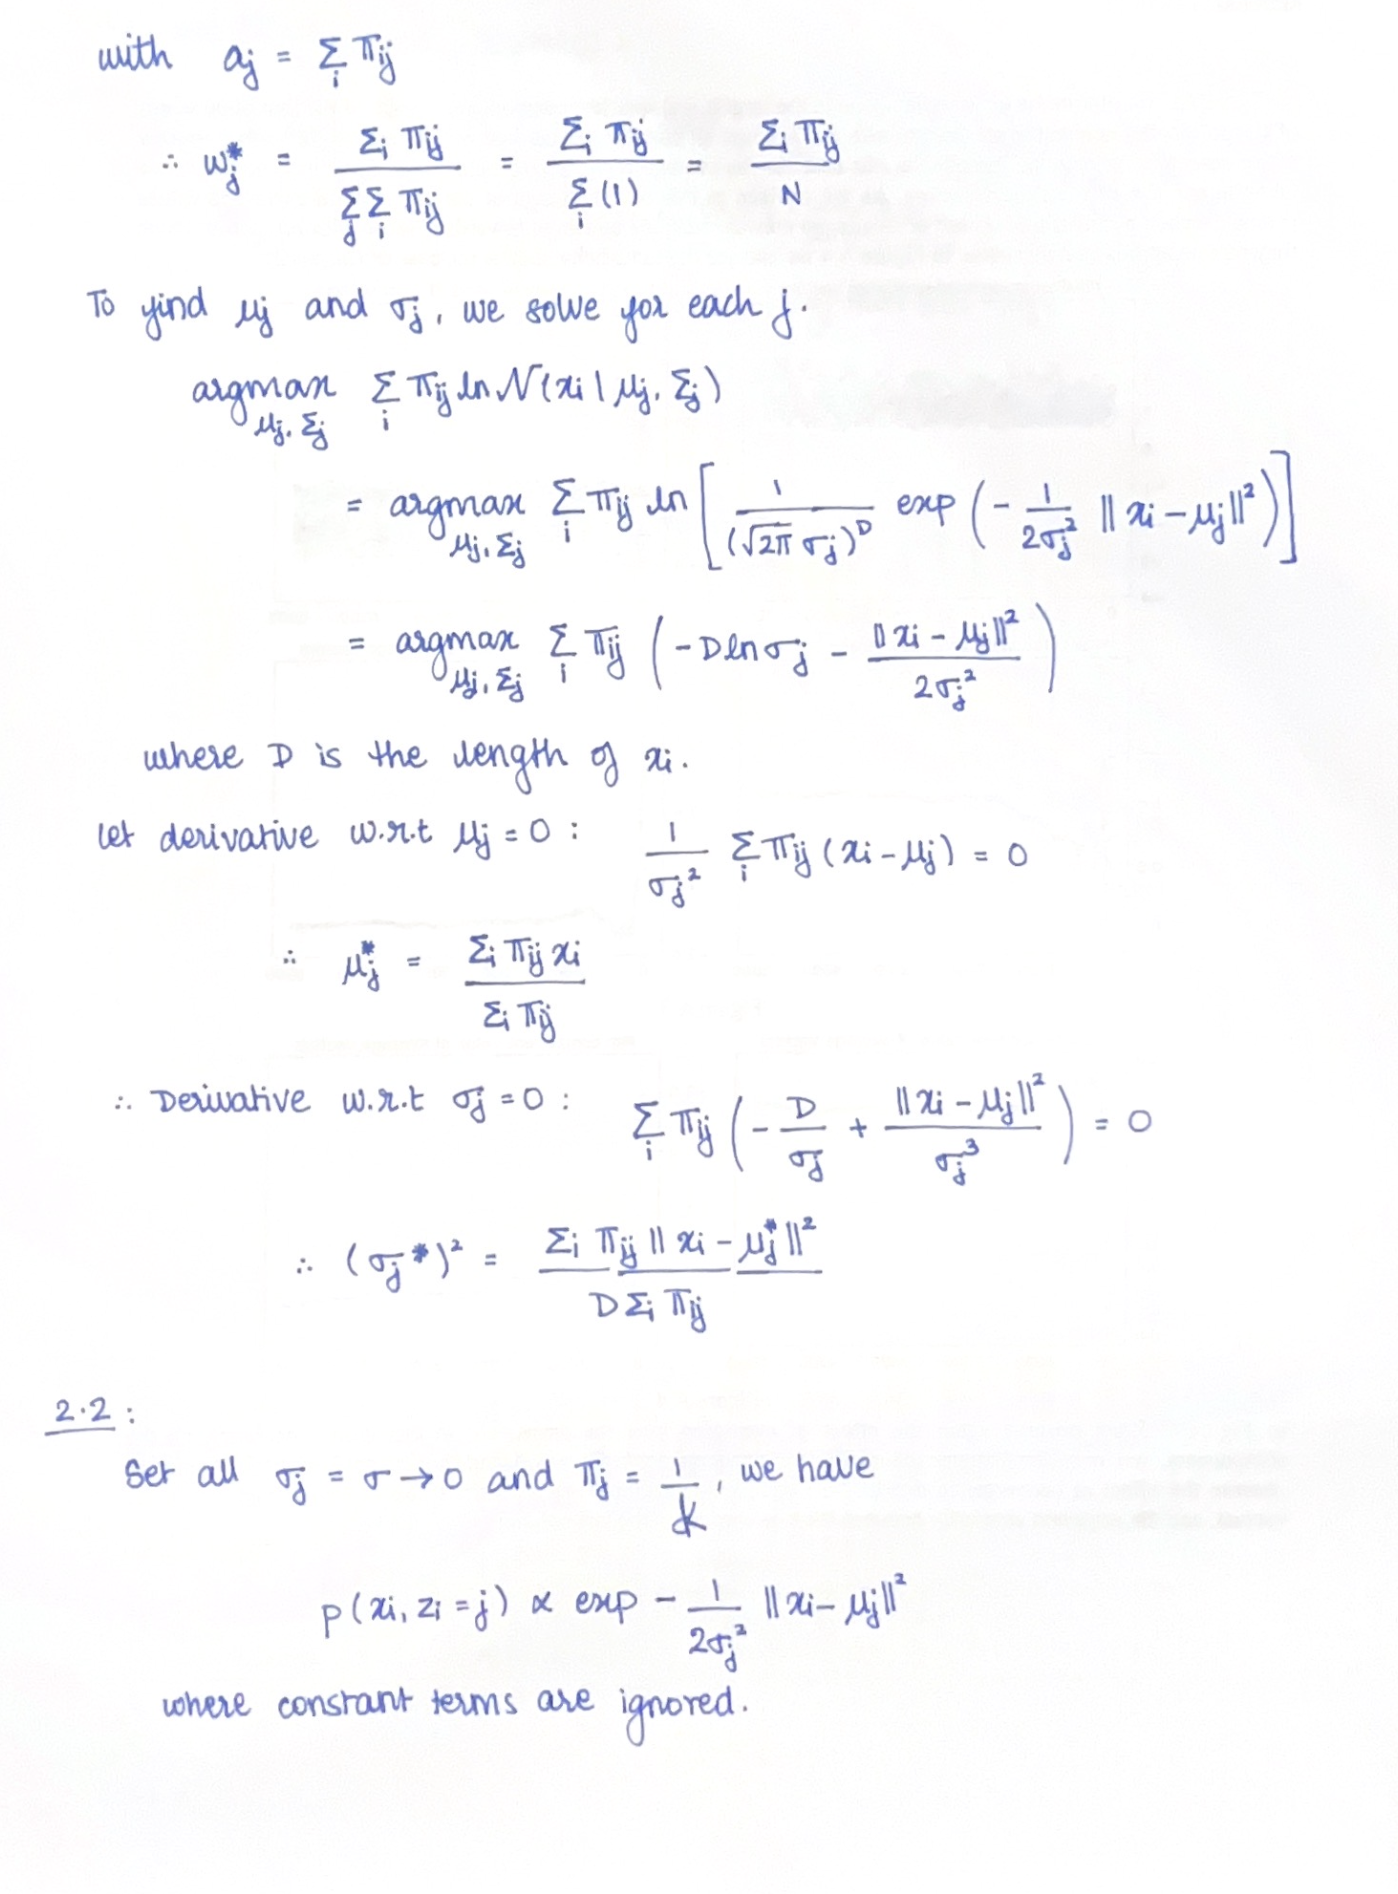 with aj = Σi πij
∴ wj* = Σi πij / Σj Σi πij = Σi πij / Σi (1) = Σi πij / N
To find μj and σj, we solve for each j.
argmax μj, Σj Σi πij ln N(xi | μj, Σj)
= argmax μj, Σj Σi πij ln [ 1 / (√2π σj)^D exp ( - 1 / 2σj² || xi - μj ||² ) ]
= argmax μj, Σj Σi πij ( - D ln σj - || xi - μj ||² / 2σj² )
where D is the length of xi.
let derivative w.r.t μj = 0 : 1 / σj² Σi πij (xi - μj) = 0
∴ μj* = Σi πij xi / Σi πij
∴ Derivative w.r.t σj = 0 : Σi πij ( - D / σj + || xi - μj ||² / σj³ ) = 0
∴ (σj*)² = Σi πij || xi - μj* ||² / D Σi πij
2.2 :
Set all σj = σ → 0 and πj = 1 / K, we have
p(xi, zi = j) ∝ exp - 1 / 2σj² || xi - μj ||²
where constant terms are ignored.